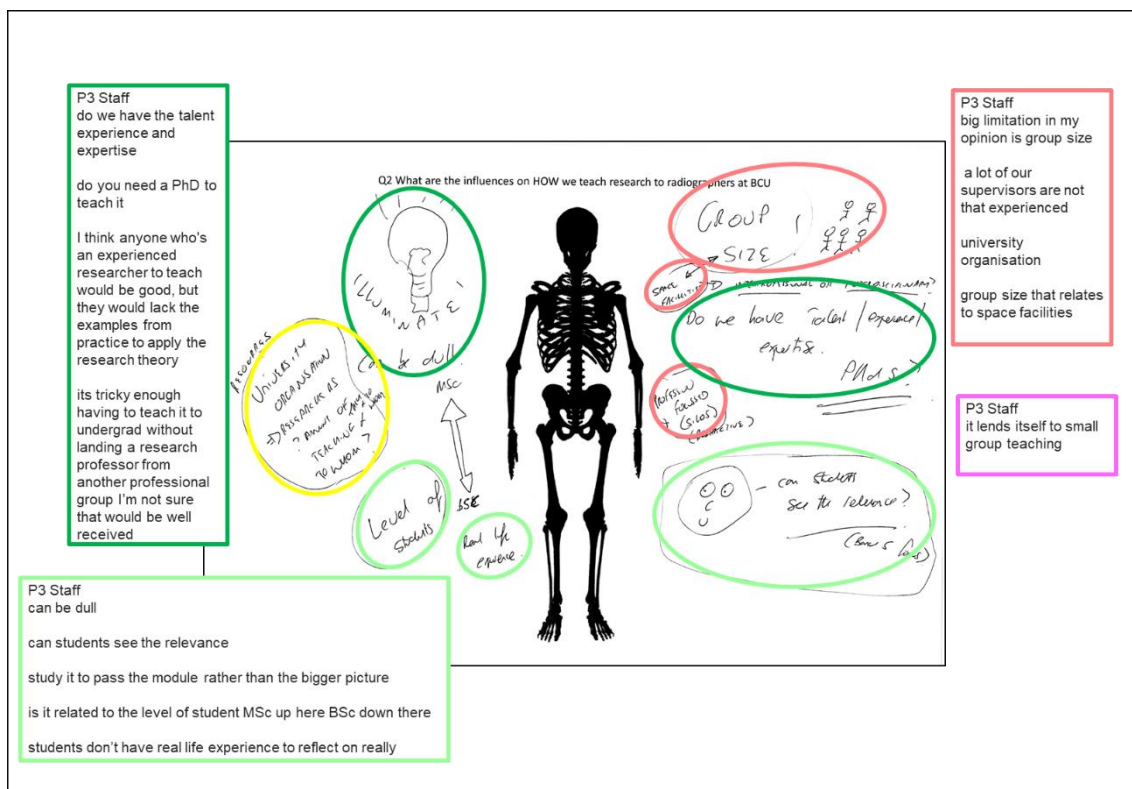 P3 Staff
do we have the talent
experience and
expertise
do you need a PhD to
teach it
I think anyone who's
an experienced
researcher to teach
would be good, but
they would lack the
examples from
practice to apply the
research theory
its tricky enough
having to teach it to
undergrad without
landing a research
professor from
another professional
group I'm not sure
that would be well
received
P3 Staff
can be dull
can students see the relevance
study it to pass the module rather than the bigger picture
is it related to the level of student MSc up here BSc down there
students don't have real life experience to reflect on really
Q2 What are the influences on HOW we teach research to radiographers at BCU
"ILLUMINATE"
Can be dull.
MSc
BSc
UNIVERSITY
ORGANISATION
TEACHING
TO WHOM?
Level of
students
Real life
experience.
GROUP
SIZE
SPACE
FACILITIES
Do we have Talent / experience /
expertise.
PhDs?
PROFESSION
FOCUSSED
(SILOS)
can students
see the relevance?
P3 Staff
big limitation in my
opinion is group size
a lot of our
supervisors are not
that experienced
university
organisation
group size that relates
to space facilities
P3 Staff
it lends itself to small
group teaching